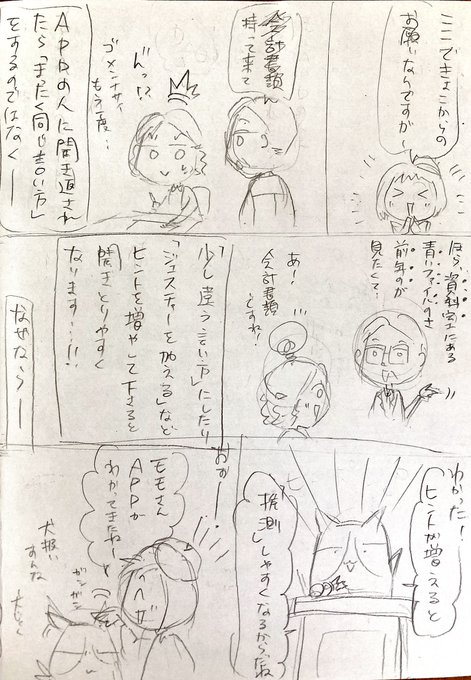 ここできょこからの
お願いなんですが〜
会計書類
持って来て
んっ!?
ゴメンナサイ
もう一度…
APDの人に聞き返され
たら「まったく同じ言い方」
をするのではなく―
ほら、資料室にある
青いファイルのさ
前年のが
見たくて…
あー!
会計書類
ですね!
「少し違う言い方」にしたり
「ジェスチャーを加える」など
ヒントを増やして下さると
聞きとりやすく
なります…!!
なぜなら―
わかった!
ヒントが増えると
「推測」しやすくなるからだね
おおー
モモさん
APDが
わかってきたねー
犬扱い
すんな
ガシガシ